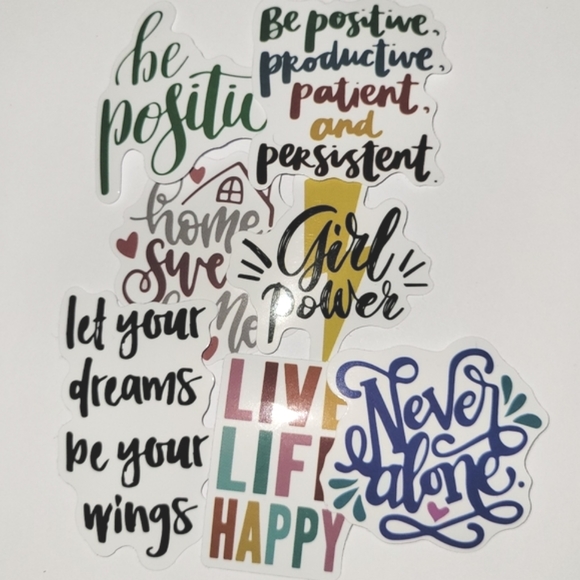 be
positi
Be positive,
productive,
patient,
and
persistent.
home
swe
Girl
Power
let your
dreams
be your
wings
LIVE
LIF
HAPPY
Never
alone.